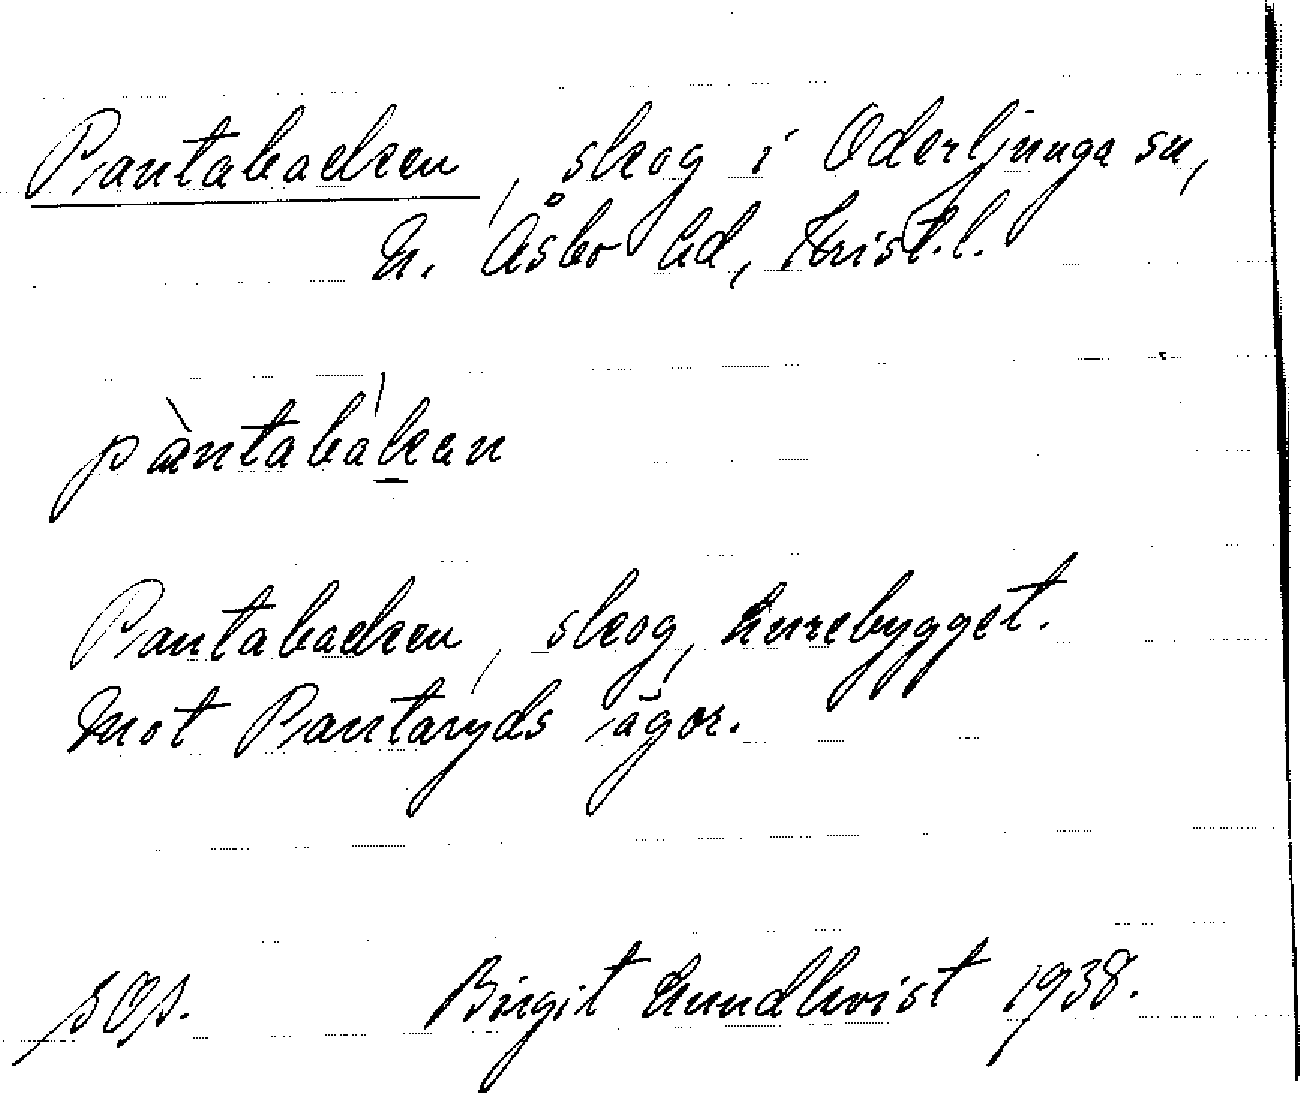 Pantabacken, skog i Oderljunga sn,
N. Åsbo hd, Krist.l.
pàntabákan
Pantabacken, skog,
Mot Pantaryds ägor.
sOs. Birgit Lundkvist 1938.